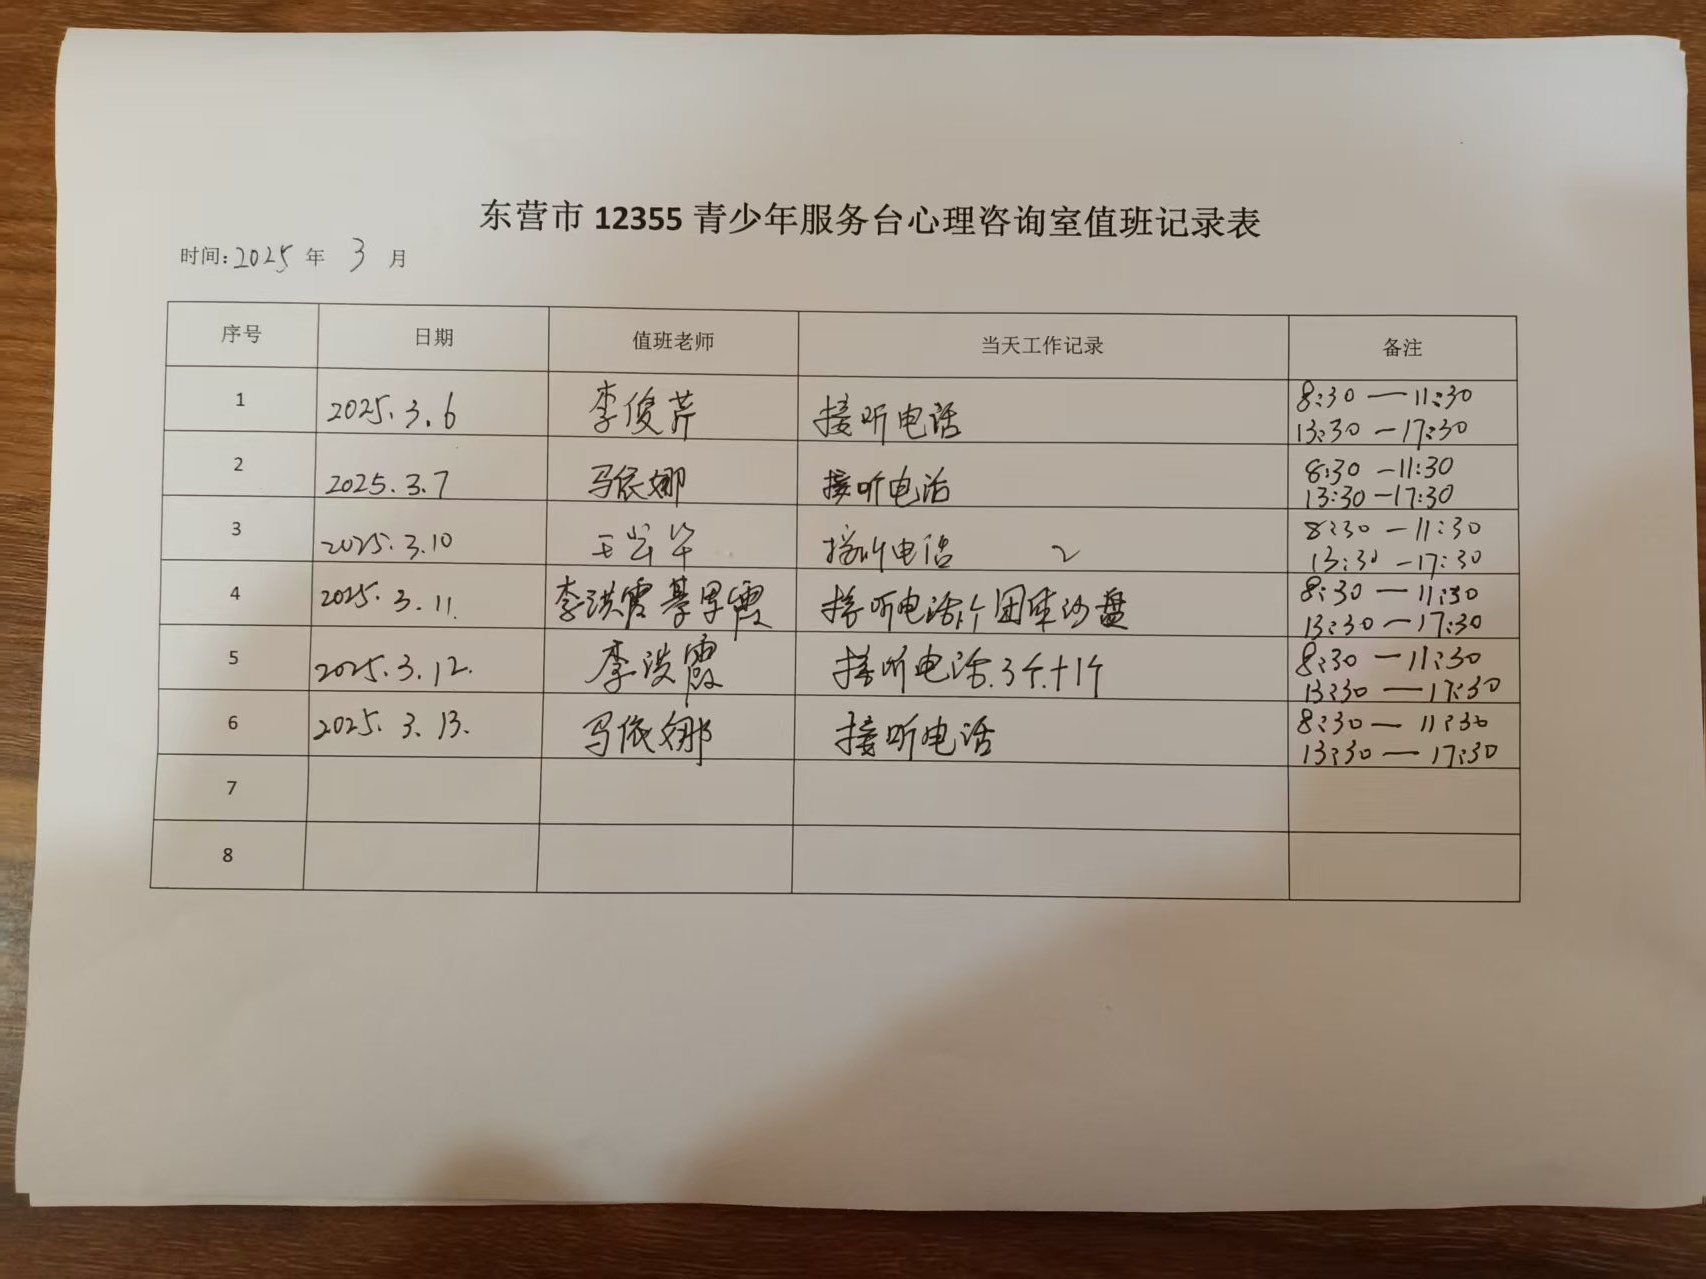 东营市 12355 青少年服务台心理咨询室值班记录表
时间: 2025 年 3 月
序号 日期 值班老师 当天工作记录 备注
1 2025.3.6 李俊芹 接听电话 8:30 — 11:30
13:30 — 17:30
2 2025.3.7 马依娜 接听电话 8:30 — 11:30
13:30 — 17:30
3 2025.3.10 王 接听电话 2 8:30 — 11:30
13:30 — 17:30
4 2025.3.11. 李洪霞 霞 接听电话1个 团体沙盘 8:30 — 11:30
13:30 — 17:30
5 2025.3.12. 李洪霞 接听电话.3个.+1个 8:30 — 11:30
13:30 — 17:30
6 2025.3.13. 马依娜 接听电话 8:30 — 11:30
13:30 — 17:30
7
8